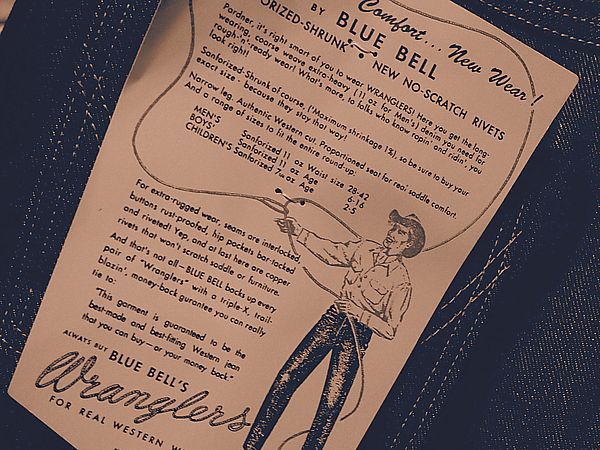 Comfort... New Wear!
BY BLUE BELL
ORIZED-SHRUNK NEW NO-SCRATCH RIVETS
Pardner, it's right smart of you to wear WRANGLERS! Here you get the long-
wearing, coarse weave extra-heavy (11 oz for Men's) denim you need for
rough 'n' ready wear! What's more, to folks who know ropin' and ridin', you
look right!
Sanforized-Shrunk of course, (Maximum shrinkage 1%), so be sure to buy your
exact size - because they stay that way!
Narrow leg. Authentic Western cut. Proportioned seat for real saddle comfort.
And a range of sizes to fit the entire round-up:
MEN'S Sanforized 11 oz Waist size 28-42
BOYS' Sanforized 11 oz Age 6-16
CHILDREN'S Sanforized 7 oz Age 2-5
For extra-rugged wear, seams are interlocked,
buttons rust-proofed, hip pockets bar-tacked
and riveted! Yep, and at last here are copper
rivets that won't scratch saddle or furniture.
And that's not all—BLUE BELL backs up every
pair of "Wranglers" with a triple-X, trail-
blazin', money-back gurantee you can really
tie to:
This garment is guaranteed to be the
best-made and best-fitting Western jean
that you can buy—or your money back."
ALWAYS BUY BLUE BELL'S
Wranglers
FOR REAL WESTERN